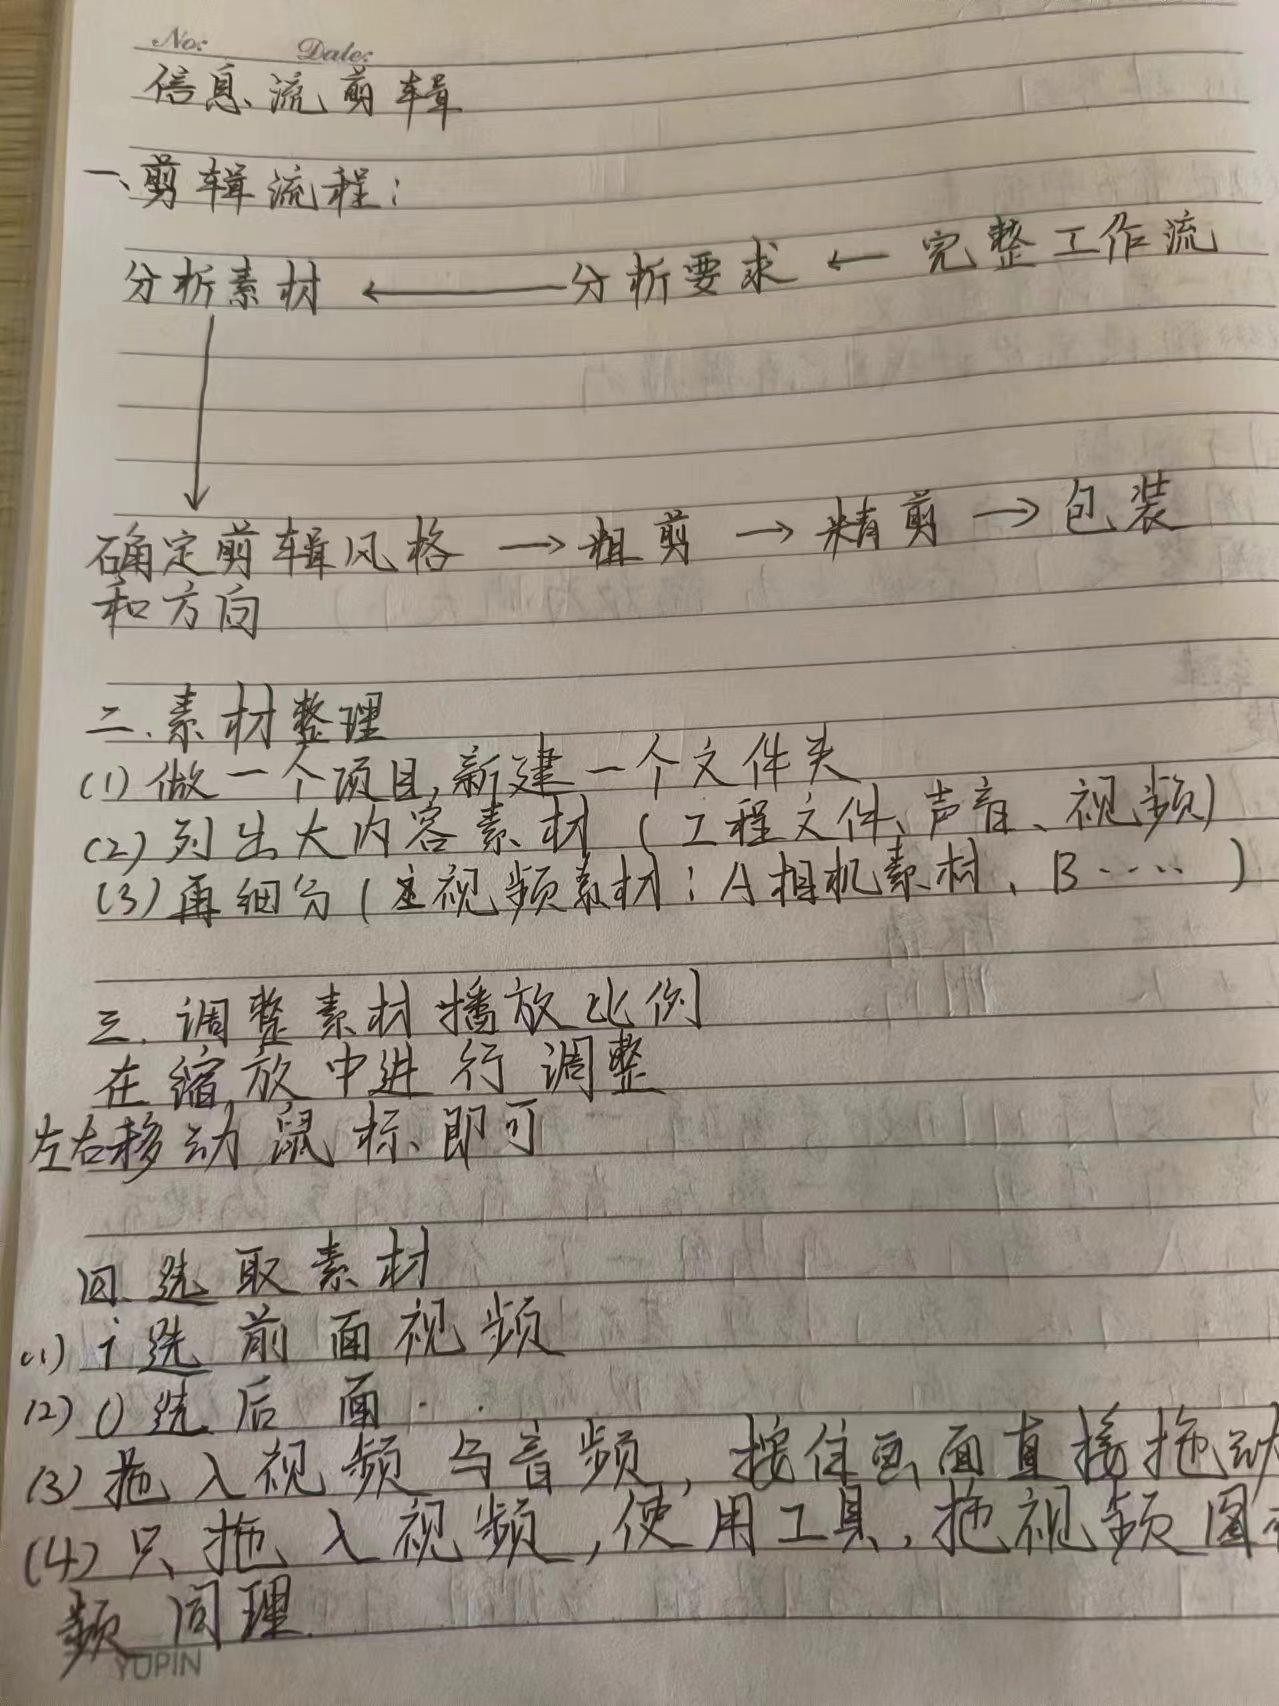 No: Date:
信息流剪辑
一、剪辑流程：
分析素材 ← 分析要求 ← 完整工作流
↓
确定剪辑风格 → 粗剪 → 精剪 → 包装
和方向
二.素材整理
(1) 做一个项目,新建一个文件夹
(2) 列出大内容素材 (工程文件、声音、视频)
(3) 再细分 ( 视频素材：A相机素材、B·····)
三.调整素材播放比例
在缩放中进行调整
左右移动鼠标即可
四.选取素材
(1) i选前面视频
(2) O选后面··
(3) 拖入视频与音频,按住画面直接拖动
(4) 只拖入视频,使用工具,拖视频图
频同理.
YUPIN